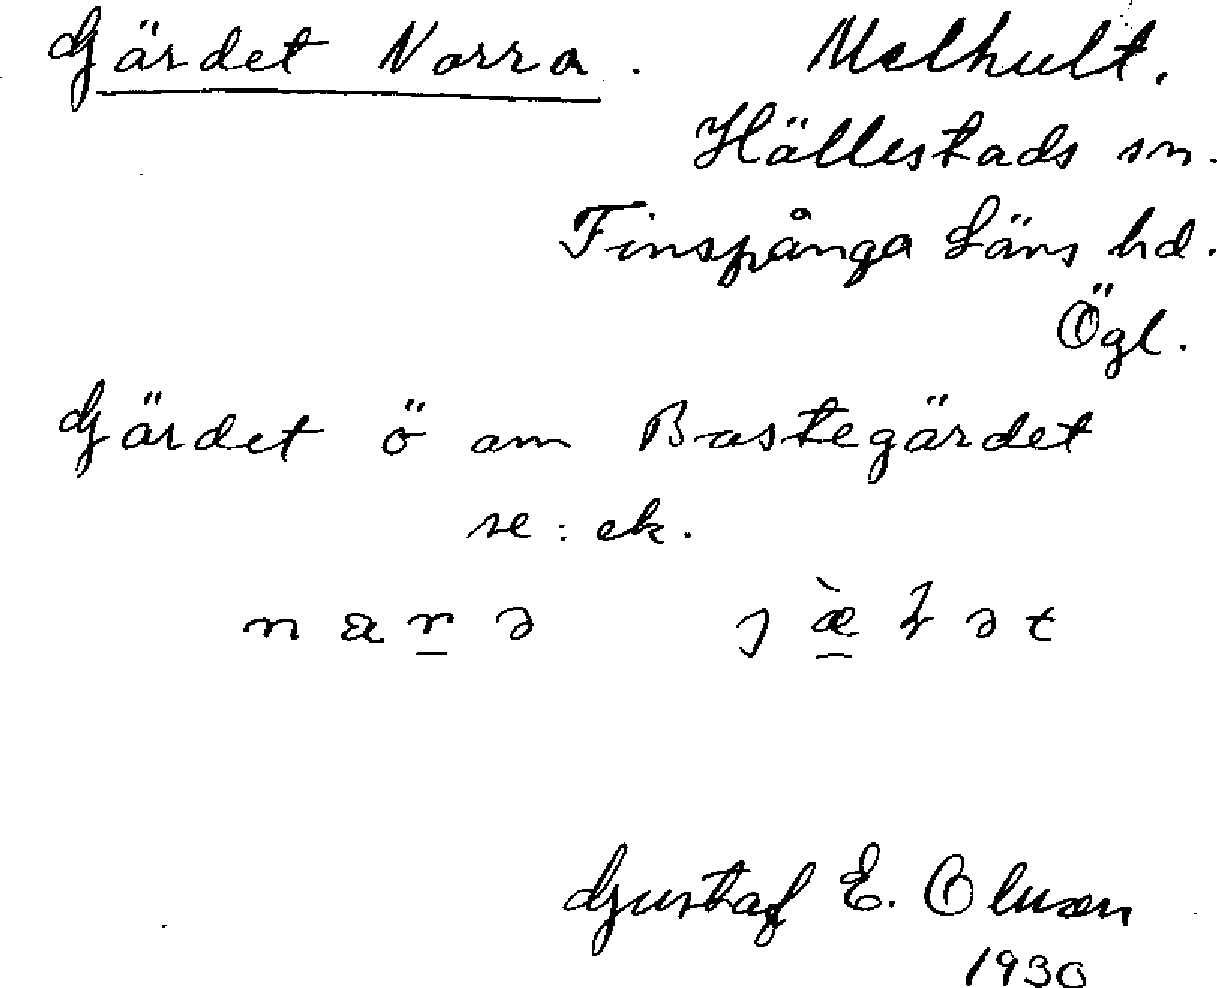 Gärdet Norra. Melhult.
Hällestads sn.
Finspånga Läns hd.
Ögl.
Gärdet ö om Bastegärdet
se: ek.
Gustaf E. Olusen
1930